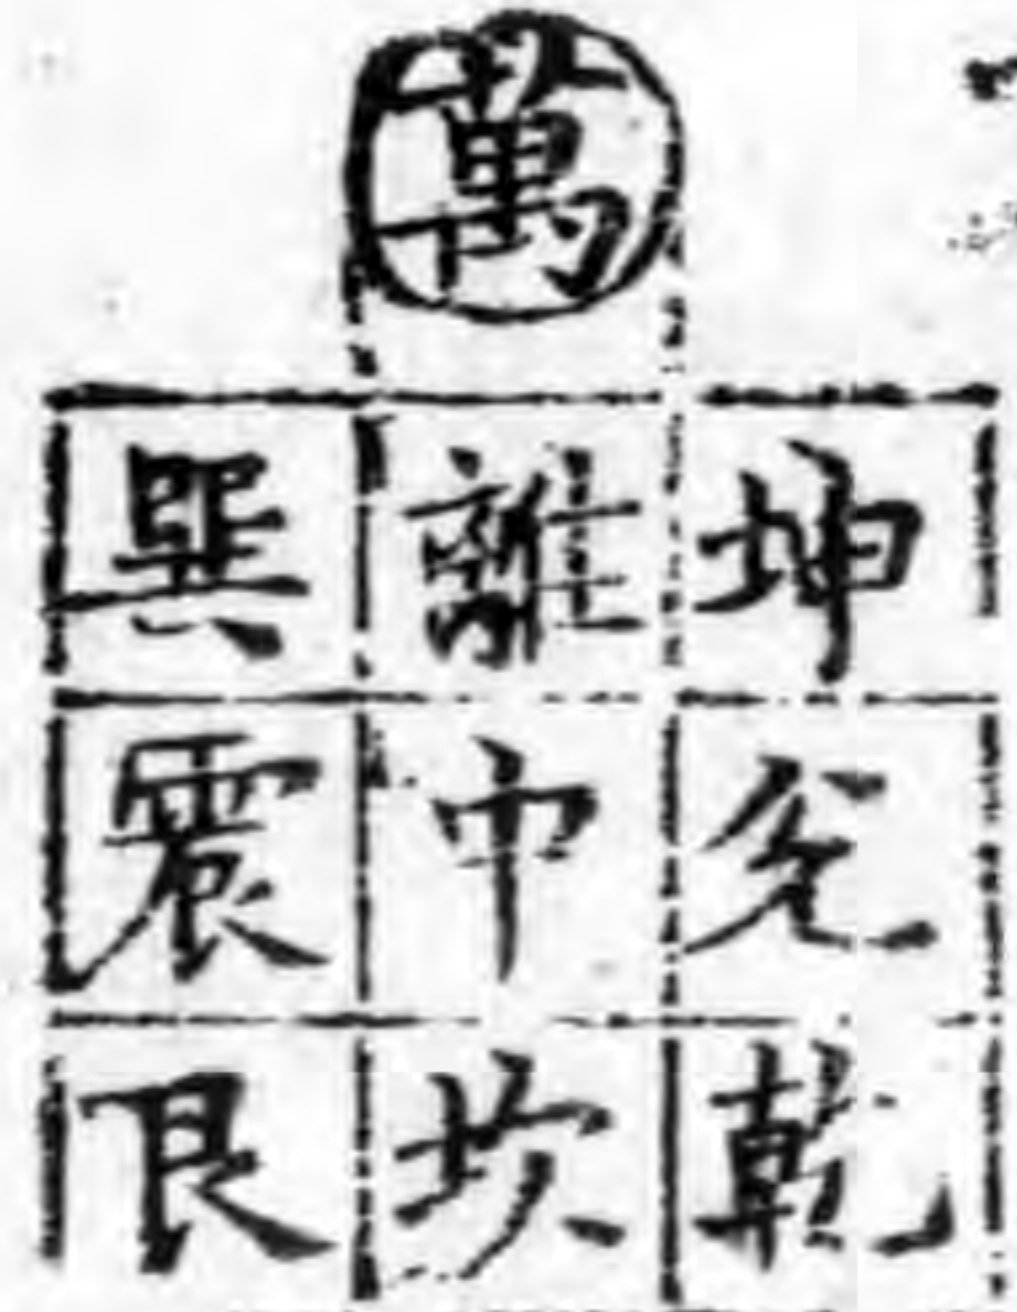 萬
巽離坤
震中兌
艮坎乾